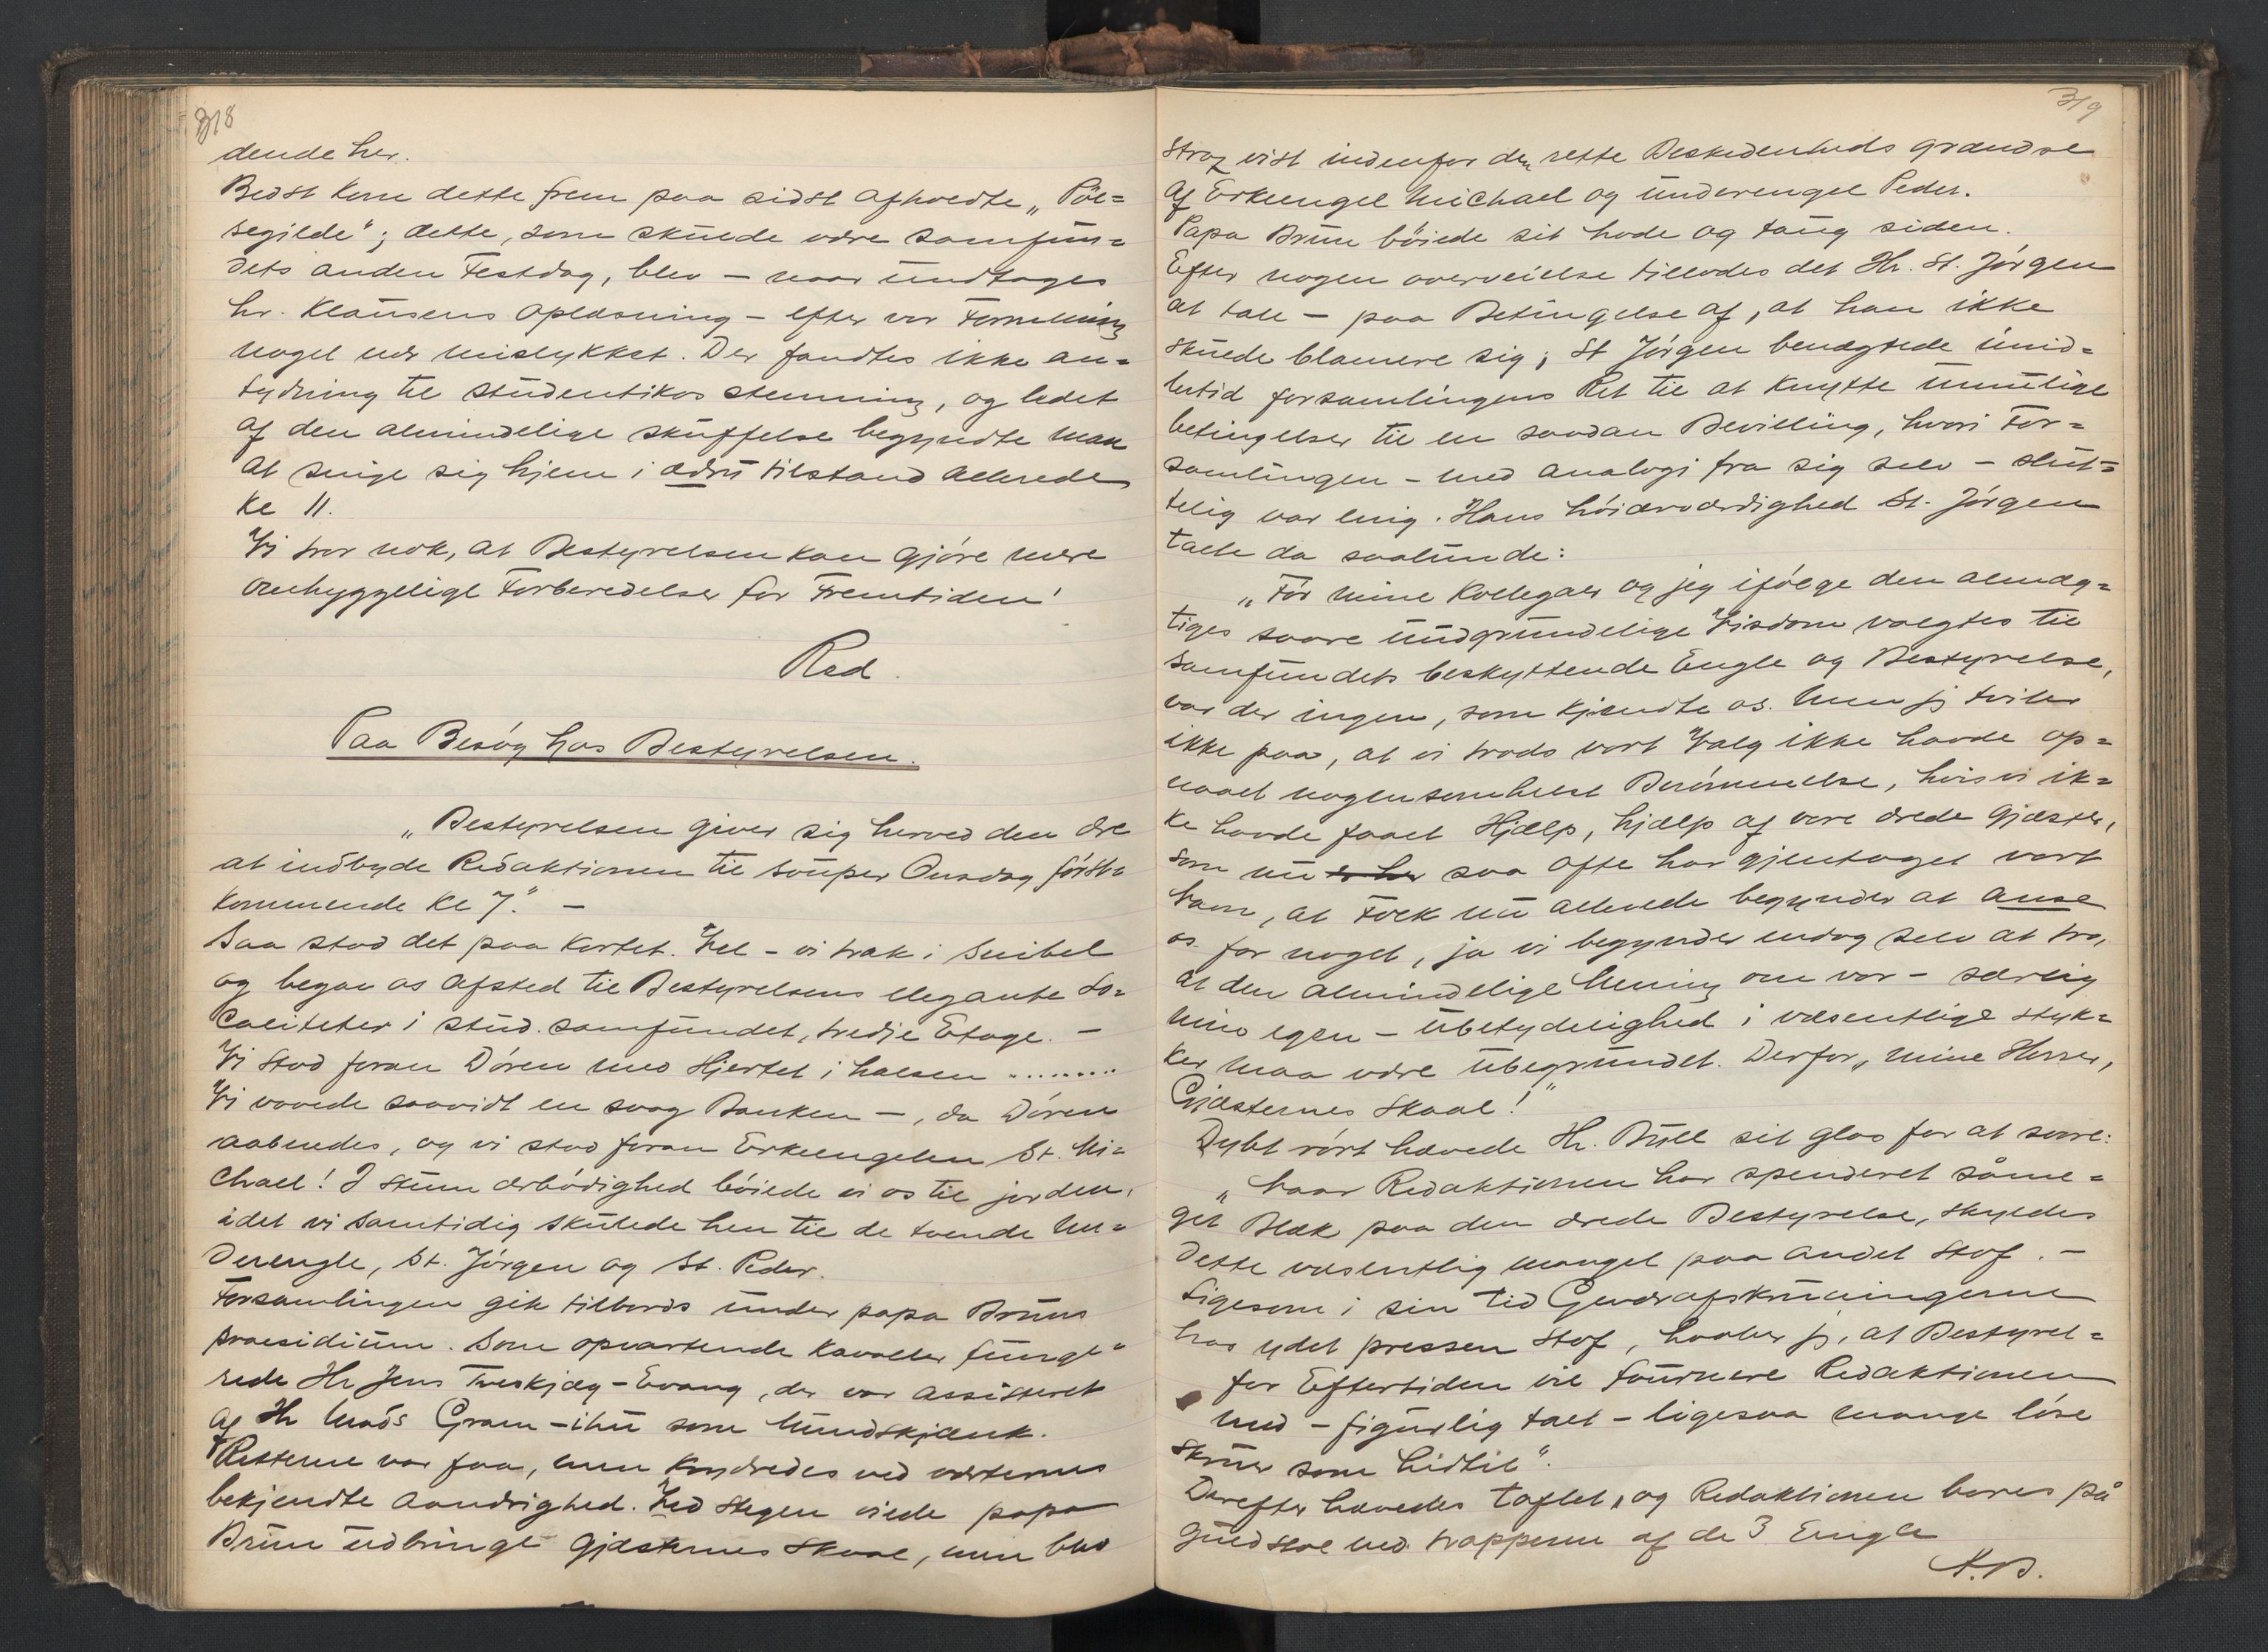 318
dende her.
Bedst kom dette frem paa sidst afholdte „Pöl=
segilde"; dette, som skulde være Samfun=
dets anden Festdag, blev – naar undtages
hr. Klausens Oplæsning – efter vor Formening
noget nær mislykket. Der fandtes ikke an=
tydning til studentikos stemning, og ledet
af den almindelige skuffelse begyndte man
at snige sig hjem i ædru tilstand allerede
Kl 11.
Vi tror nok, at Bestyrelsen kan gjöre mere
omhyggelige Forberedelser for Fremtiden!
Red.
Paa Besög hos Bestyrelsen.
„Bestyrelsen giver sig herved den ære
at indbyde Redaktionen til souper Onsdag förstk
kommende Kl 7." –
Saa stod det paa Kortet. Vel – vi trak i Snibel
og begav os afsted til Bestyrelsens elegante Lo=
caliteter i Stud. Samfundet, tredje Etage. –
Vi stod foran Dören med Hjertet i halsen ........
Vi vovede saavidt en svag Banken –, da Dören
aabnedes, og vi stod foran Erkeengelen St. Mi=
chael! I stum ærbödighed böiede vi os til jorden,
idet vi samtidig skulede hen til de tvende Un=
derengle, St. Jörgen og St. Peder.
Forsamlingen gik tilbords under papa Bruns
præsidium. Som opvartende Kavaller funge=
rede Hr Jens Tveskjæg-Evang, der var assisteret
af Hr Mads Gram-ihu som Mundskjænk.
Retterne var faa, men krydredes ved værternes
bekjendte Aandrighed. Ved Stegen vilde papa
Brun udbringe Gjæsternes Skaal, men blev
319
strax vist indenfor den rette Beskedenheds grændse
af Erkeengel Michael og underengel Peder.
Papa Brun böiede sit hode og taug siden.
Efter nogen overveielse tillodes det Hr. St. Jörgen
at tale – paa Betingelse af, at han ikke
skulde blamere sig; St Jörgen benægtede imid=
lertid forsamlingens Ret til at knytte umulige
betingelser til en saadan Bevilling, hvori For=
samlingen – med analogi fra sig selv – slut=
telig var enig. Hans höiærværdighed St. Jörgen
talte da saalunde:
„För mine Kollegaer og jeg ifölge den almæg=
tiges saare uudgrundelige Visdom valgtes til
Samfundets beskyttende Engle og Bestyrelse,
var der ingen, som kjendte os. Men jeg tviler
ikke paa, at vi trods vort Valg ikke havde op=
naaet nogensomhelst Berömmelse, hvis vi ik=
ke havde faaet Hjælp, hjælp af vore ærede Gjæster,
som nu er her saa ofte har gjentaget vort
Navn, at Folk nu allerede begynder at anse
os for noget, ja vi begynder endog selv at tro,
at den almindelige Mening om vor – særlig
min egen – Ubetydelighed i væsentlige styk=
ker maa være ubegrundet. Derfor, mine Herrer,
Gjæsternes Skaal!"
Dybt rört hævede Hr. Bull sit glas for at svare:
„Naar Redaktionen har spenderet såme=
get Blæk paa den ærede Bestyrelse, skyldes
dette væsentlig mangel paa andet Stof. –
Ligesom i sin tid Geværaf­skruningerne
har ydet pressen Stof, haaber jeg, at Bestyrel=
for Eftertiden vil fournere Redaktionen
med – figurlig talt – ligesaa mange löse
Skruer som hidtil".
Derefter hævedes taflet, og Redaktionen bares på
Guldstol ned trapperne af de 3 Engle